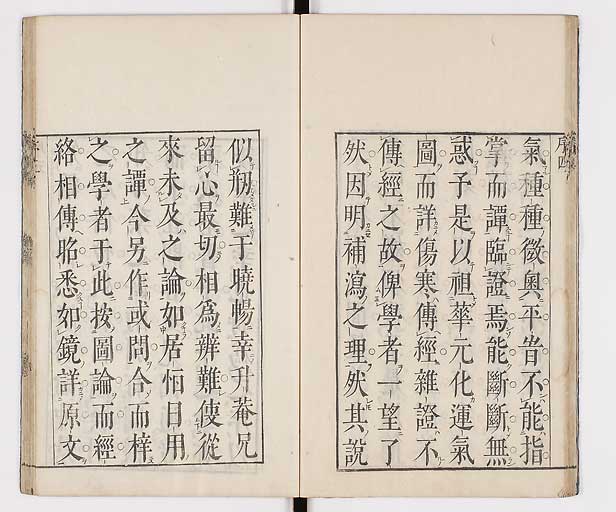 氣種種徵奧平昔不能指
掌而譚臨證焉能斷斷無
惑予是以祖華元化運氣
圖而詳傷寒傳經雜證不
傳經之故俾學者一望了
然因明補瀉之理然其說
似剏難于曉暢幸升菴兄
留心最切相爲辨難僾從
來未及之論如居恒日用
之譚今另作或問合而梓
之學者于此按圖論而經
絡相傳昭悉如鏡詳原文